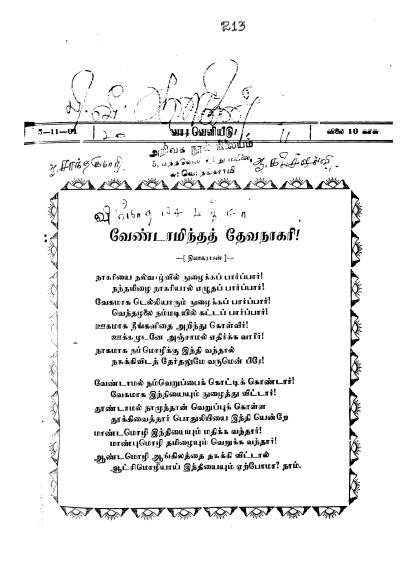 213
5-11-61
வார வெளியீடு!
விலை 10 காசு
அறிவக நூல் நிலையம்
வேண்டாமிந்தத் தேவநாகரி!
நாகரியை நல்வாழ்வில் நுழைக்கப் பார்ப்பார்!
நந்தமிழை நாகரியால் எழுதப் பார்ப்பார்!
வேகமாக டெல்லியாரும் நுழைக்கப் பார்ப்பார்!
வெந்தழலை நம்மடியில் கட்டப் பார்ப்பார்!
ஊகமாக நீங்களிதை அறிந்து கொள்வீர்!
ஊக்கமுடனே அஞ்சாமல் எதிர்க்க வாரீர்!
நாகமாக நம்மொழிக்கு இந்தி வந்தால்
நசுக்கிவிடத் தேர்தலுமே வருமென் பீரே!
வேண்டாமல் நம்வெறுப்பைக் கொட்டிக் கொண்டார்!
வேகமாக இந்தியையும் நுழைத்து விட்டார்!
தூண்டாமல் நாமுந்தான் வெறுப்புக் கொள்ள
தூக்கிவைத்தார் பொதுலிபியை இந்தி யென்றே
மாண்டமொழி இந்தியையும் மதிக்க வந்தார்!
மாண்புமொழி தமிழையும் வெறுக்க வந்தார்!
ஆண்டமொழி ஆங்கிலத்தை நசுக்கி விட்டால்
ஆட்சிமொழியாய் இந்தியையும் ஏற்போமா? நாம்.